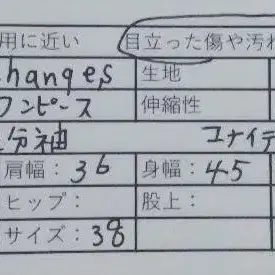 用に近い 目立った傷や汚れ
changes 生地
ワンピース 伸縮性
分袖 ユナイテ
肩幅：36 身幅：45
ヒップ： 股上：
サイズ：38